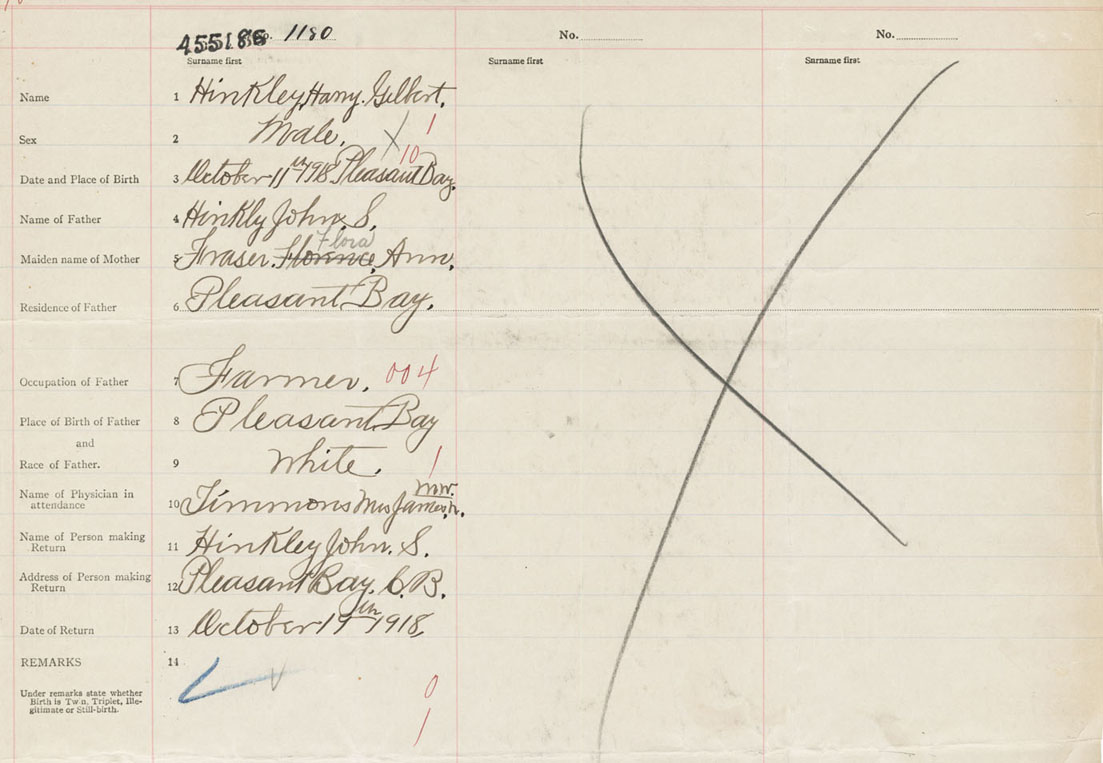 455186 No. 1180 No. No.
Surname first Surname first Surname first
Name 1 Hinkley, Harry. Gilbert.
Sex 2 Male. X 1
10
Date and Place of Birth 3 October 11th 1918 Pleasant Bay.
Name of Father 4 Hinkly John. S.
Flora
Maiden name of Mother 5 Fraser. Florence, Ann.
Residence of Father 6 Pleasant Bay.
Occupation of Father 7 Farmer. 004
Place of Birth of Father 8 Pleasant Bay
and
Race of Father. 9 White. 1
Name of Physician in
attendance 10 Timmons Mrs James
Name of Person making
Return 11 Hinkley John. S.
Address of Person making
Return 12 Pleasant Bay. C.B.
Date of Return 13 October 19th 1918.
REMARKS 14
Under remarks state whether
Birth is Twin, Triplet, Ille-
gitimate or Still-birth.
0
1